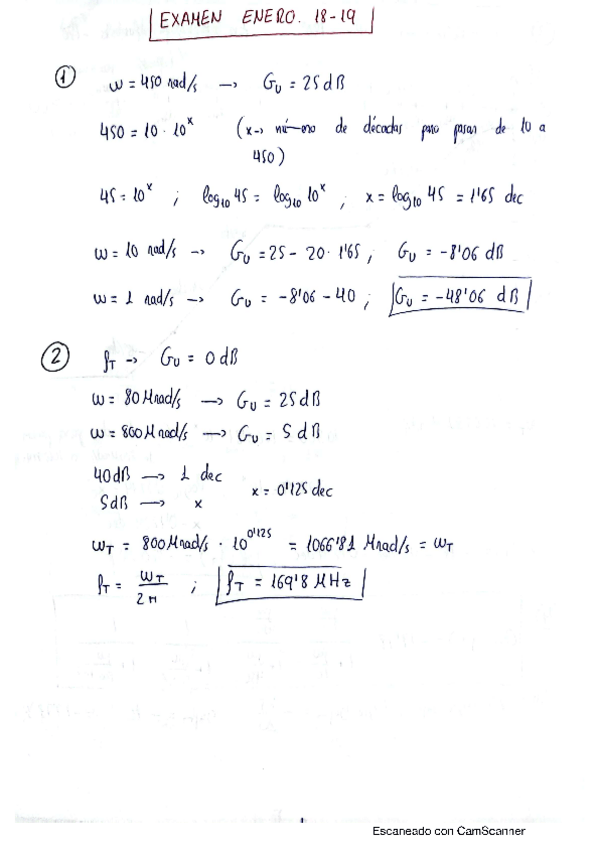 EXAMEN ENERO. 18-19
① ω = 450 rad/s → Gᵤ = 25 dB
450 = 10 · 10ˣ (x→ número de décadas para pasar de 10 a
450)
45 = 10ˣ ; log₁₀ 45 = log₁₀ 10ˣ ; x = log₁₀ 45 = 1'65 dec
ω = 10 rad/s → Gᵤ = 25 - 20 · 1'65 ; Gᵤ = -8'06 dB
ω = 1 rad/s → Gᵤ = -8'06 - 40 ; Gᵤ = -48'06 dB
② fT → Gᵤ = 0 dB
ω = 80 Mrad/s → Gᵤ = 25 dB
ω = 800 Mrad/s → Gᵤ = 5 dB
40 dB → 1 dec
5 dB → x x = 0'125 dec
ωT = 800 Mrad/s · 10^0'125 = 1066'81 Mrad/s = ωT
fT = ωT / 2π ; fT = 169'8 MHz
Escaneado con CamScanner